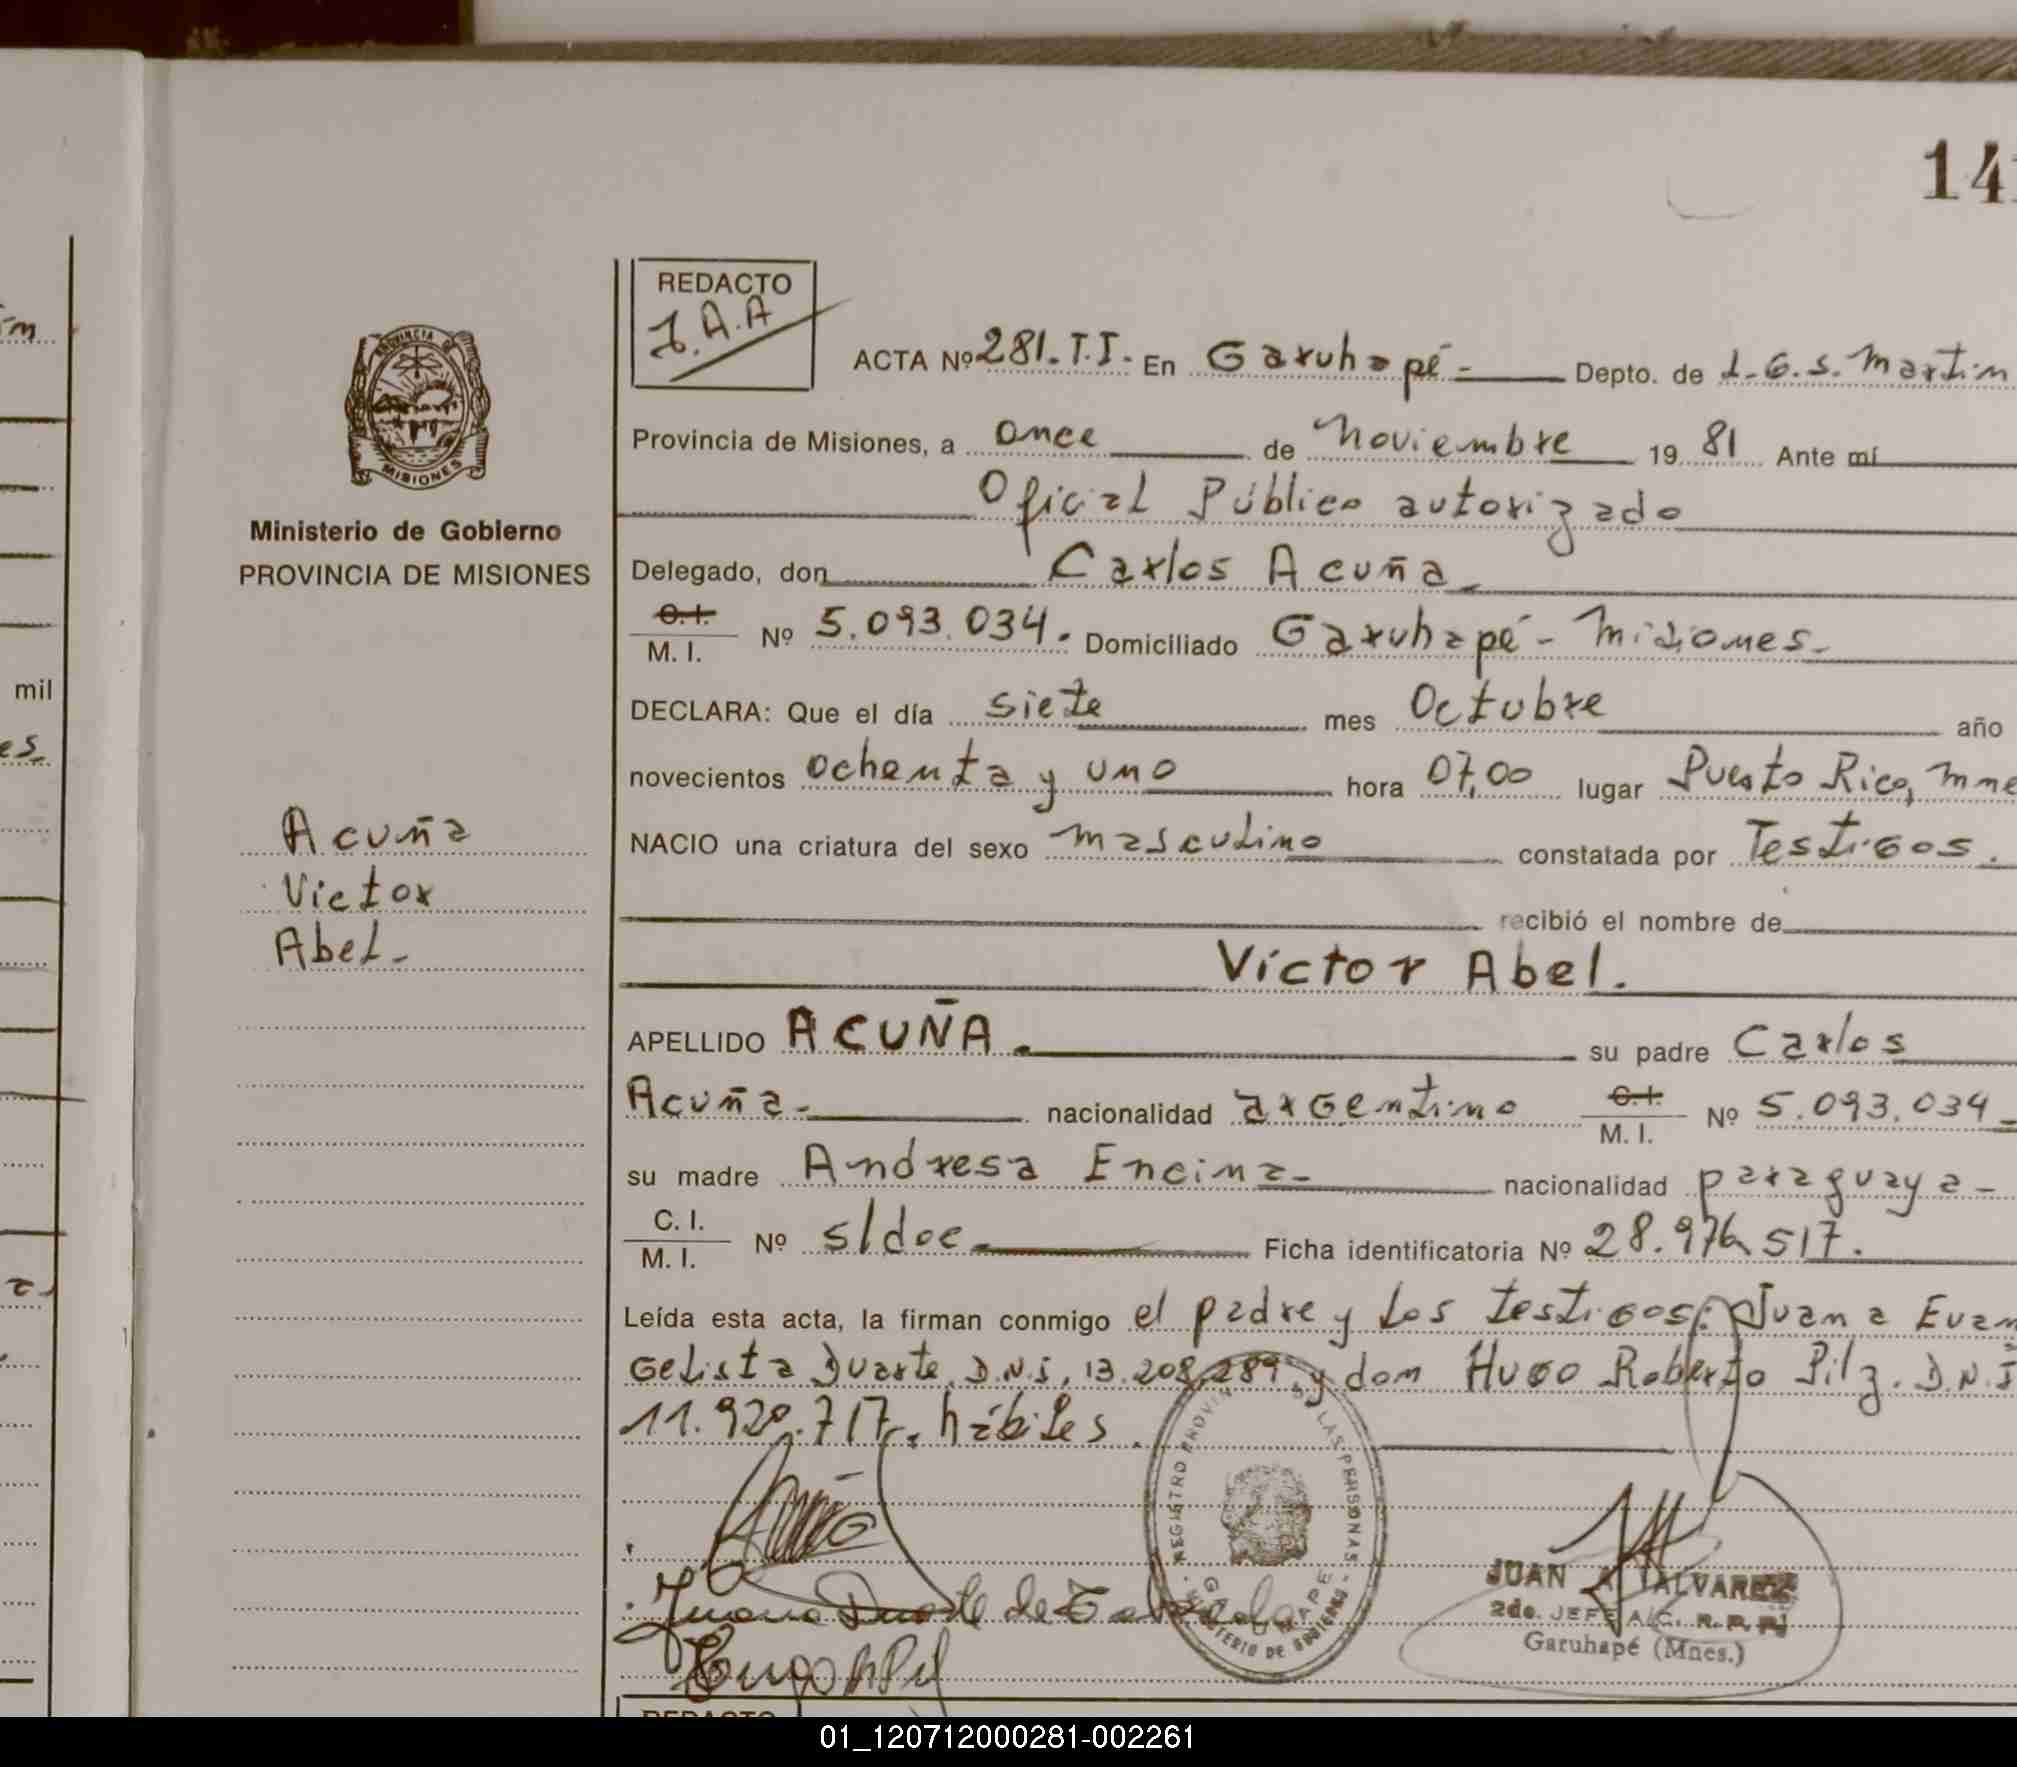 14
REDACTO
J.A.A
ACTA Nº 281.T.I. En Garuhapé- Depto. de L.G.S. Martin
Provincia de Misiones, a once de Noviembre 19 81 Ante mí
Oficial Público autorizado
PROVINCIA DE
MISIONES
Ministerio de Gobierno
PROVINCIA DE MISIONES
Delegado, don Carlos Acuña
C.I.
M. I. Nº 5.093.034. Domiciliado Garuhapé - Misiones.
mil
DECLARA: Que el día siete mes Octubre año
es.
novecientos ochenta y uno hora 07,00 lugar Puerto Rico, Mne
Acuña
Victor
Abel-
NACIO una criatura del sexo masculino constatada por Testigos.
recibió el nombre de
Víctor Abel.
APELLIDO ACUÑA. su padre Carlos
Acuña- nacionalidad argentino C.I.
M. I. Nº 5.093.034
su madre Andresa Encina- nacionalidad paraguaya-
C. I.
M. I. Nº s/doc. Ficha identificatoria Nº 28.976.517.
Leída esta acta, la firman conmigo el padre y los testigos: Juana Evan
gelista Duarte, D.N.I, 13.208.289, y don Hugo Roberto Pilz. D.N.I
11.920.717., hábiles.
REGISTRO PROVIN LAS PERSONAS
MINISTERIO DE GOBIERNO
Juana Duarte de
JUAN A. ALVAREZ
2do. JEFE A/C. R.P.P.
Garuhapé (Mnes.)
REDACTO
01_120712000281-002261